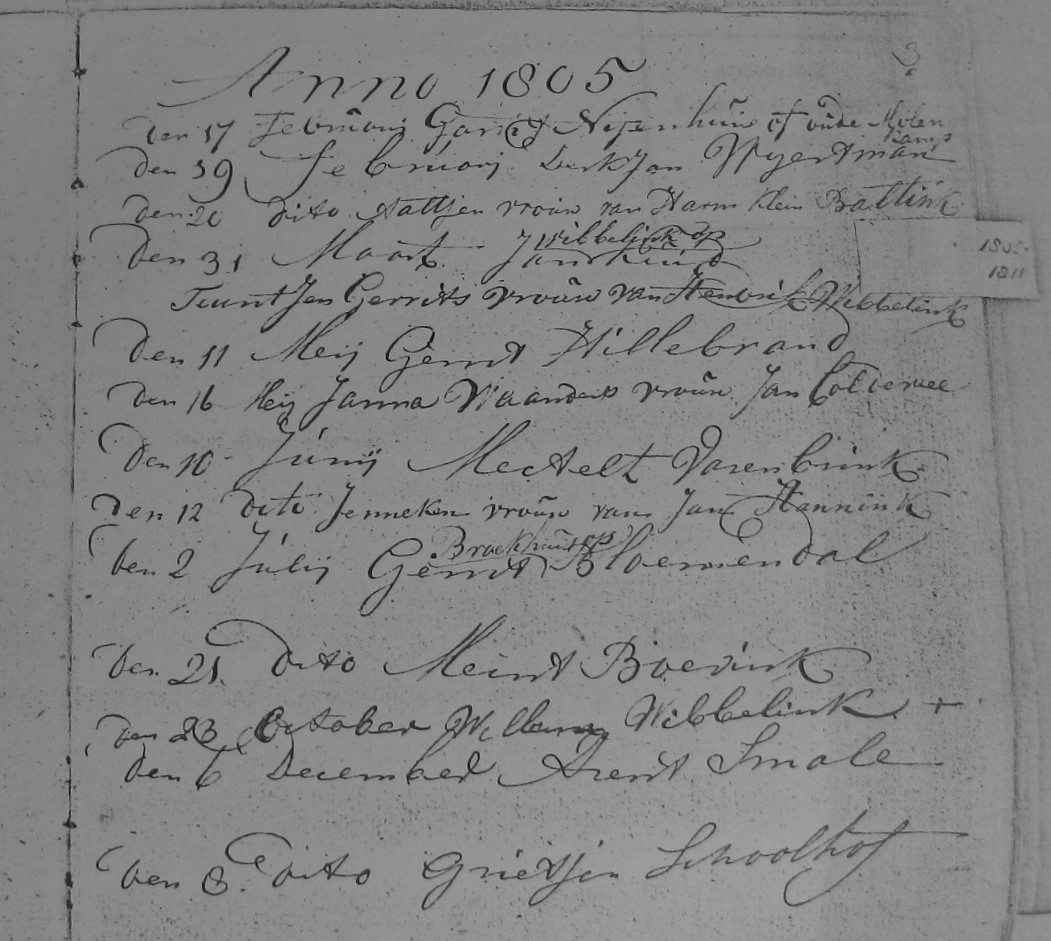 3
Anno 1805
den 17 Februarij Garrit Nijenhuis of oude Molen
den 19 Februarij Derk Jan Wegertman
den 20 dito Aaltjen vrouw van Harm Klein Baltink
Wibbelink op
Den 31 Maart Janskind
1805-
1811
Teunt Jen Gerrits vrouw van Hendrik Wibbelink
Den 11 Meij Gerrit Hillebrand
Den 16 Meij Janna Waanders vrouw Jan
Den 10 Junij Mechtelt Varenbrink
Den 12 dito Jenneken vrouw van Jan Hannink
Broekhuis op
den 2 Julij Gerrit Bloemendal
den 21 dito Meint Boevink
den 23 October Willem Wibbelink +
den 6 December Arent Smale
den 8 dito Grietjen Schoolhof